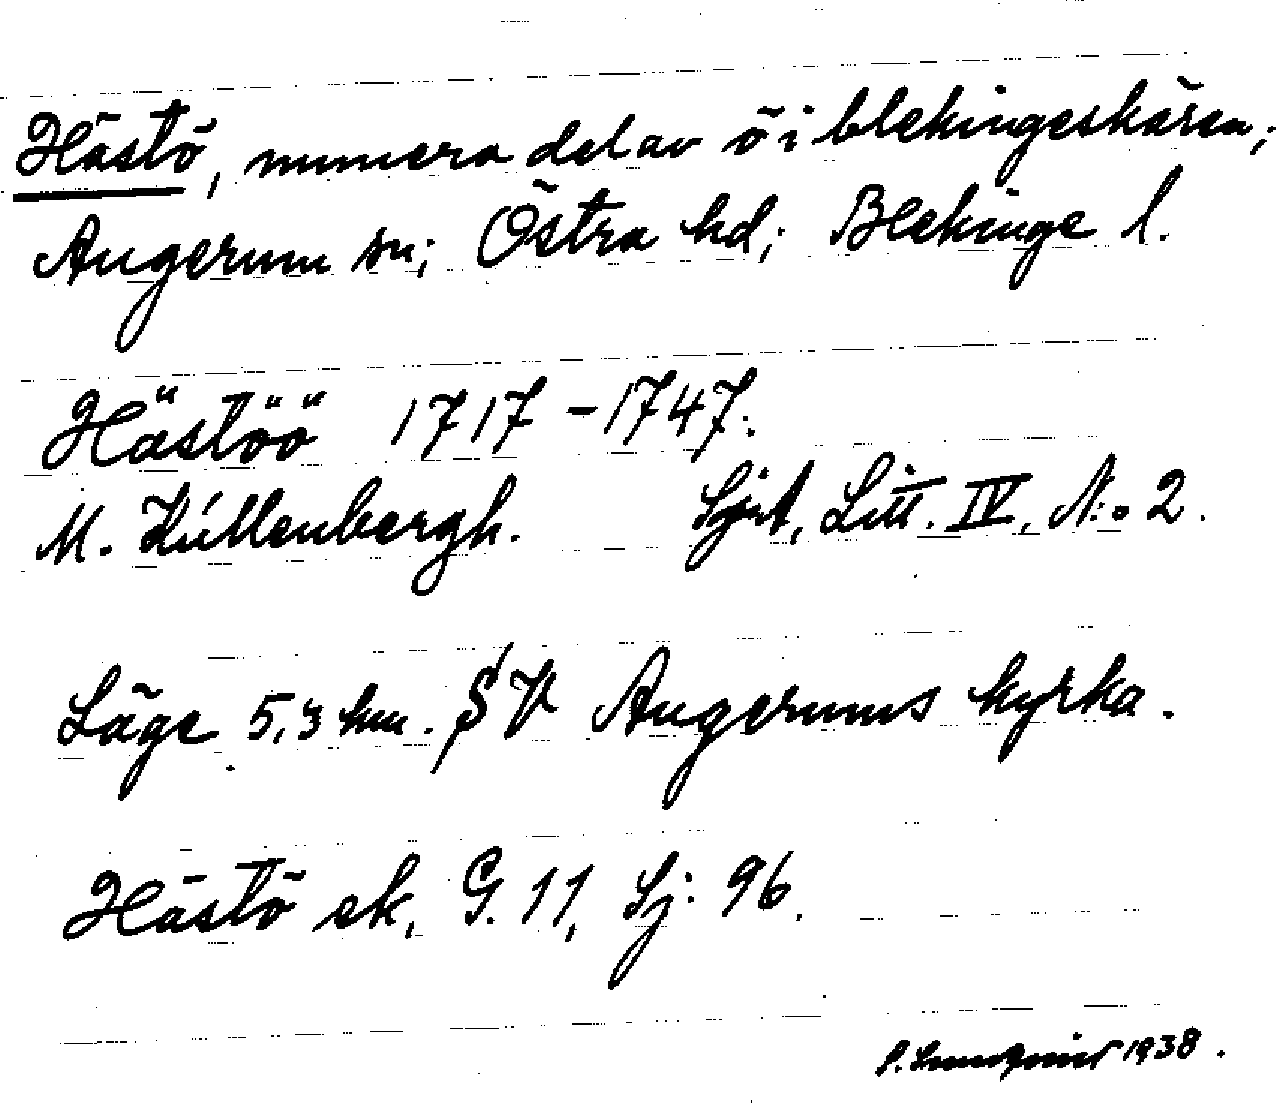 Hästö, numera del av ö i blekingeskären;
Augerum sn; Östra hd; Blekinge l.
Hästöö 1717-1747.
M. Kúllenbergh. Sjöt, Litt. IV, N:o 2.
Läge 5,3 km. SV Augerums kyrka.
Hästö ek. G. 11, Sj: 96.
1938.